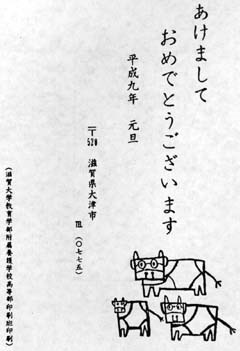 あけまして
おめでとうございます
平成九年　元旦
〒520　滋賀県大津市
℡（〇七七五）
（滋賀大学教育学部附属養護学校高等部印刷班印刷）